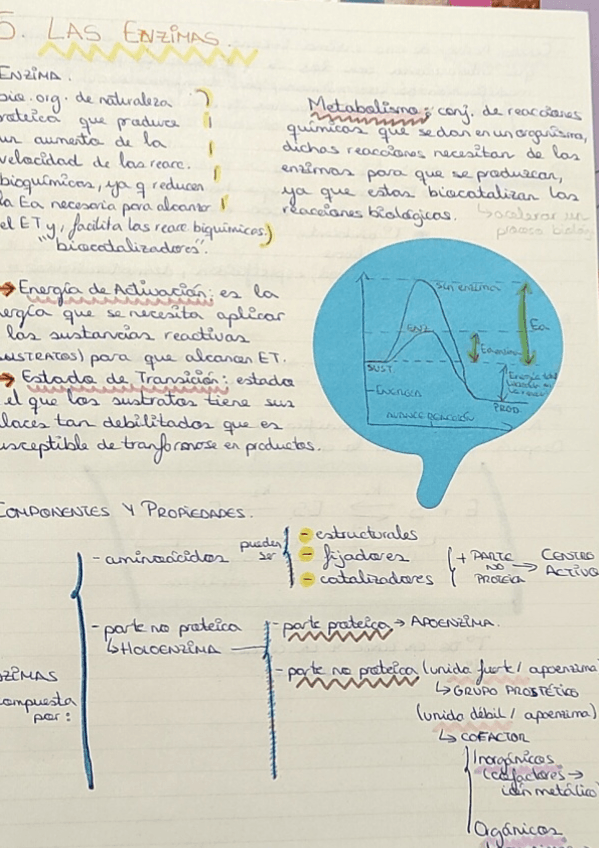 5. LAS ENZIMAS.
ENZIMA.
bio.org. de naturaleza
proteica que produce
un aumento de la
velocidad de las reacc.
bioquímicas, ya q reducen
la Ea necesaria para alcanzar
el ET y, facilita las reacc biquímicas.
"biocatalizadores".
Metabolismo: conj. de reacciones
químicas que se dan en un organismo,
dichas reacciones necesitan de las
enzimas para que se produzcan,
ya que estas biocatalizan las
reacciones biológicas.
↳ acelerar un
proceso biológ
→ Energía de Activación: es la
energía que se necesita aplicar
las sustancias reactivas
(SUSTRATOS) para que alcancen ET.
→ Estado de Transición: estado
el que los sustratos tiene sus
enlaces tan debilitados que es
susceptible de tranformarse en productos.
SIN enzima
ENZ
Ea
SUST
ENERGÍA
PROD
AVANCE REACCIÓN
COMPONENTES Y PROPIEDADES.
ENZIMAS
compuesta
por:
- aminoácidos
pueden
ser
- estructurales
- fijadores
- catalizadores
+ PARTE
NO
PROTEICA
→ CENTRO
ACTIVO
- parte no proteica
↳ HOLOENZIMA
- parte proteica → APOENZIMA.
- parte no proteica (unida fuert/ apoenzima)
↳ GRUPO PROSTÉTICO
(unida débil/ apoenzima)
↳ COFACTOR
Inorgánicos
(cofactores →
ión metálico
Ogánicos